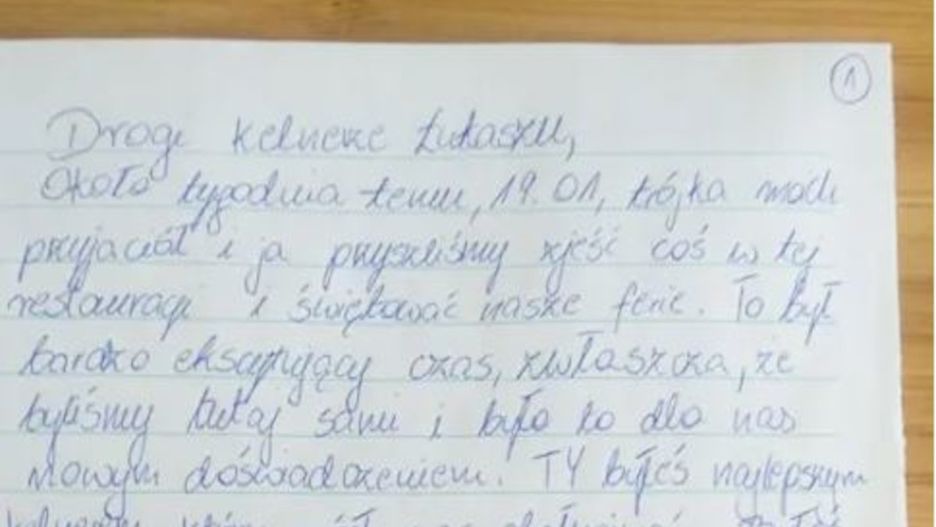 1
Drogi Kelnerze Łukaszu,
Około tygodnia temu, 19.01, trójka moich
przyjaciół i ja przyszliśmy zjeść coś w tej
restauracji i świętować nasze ferie. To był
bardzo ekscytujący czas, zwłaszcza, że
byliśmy tutaj sami i było to dla nas
nowym doświadczeniem. TY byłeś najlepszym